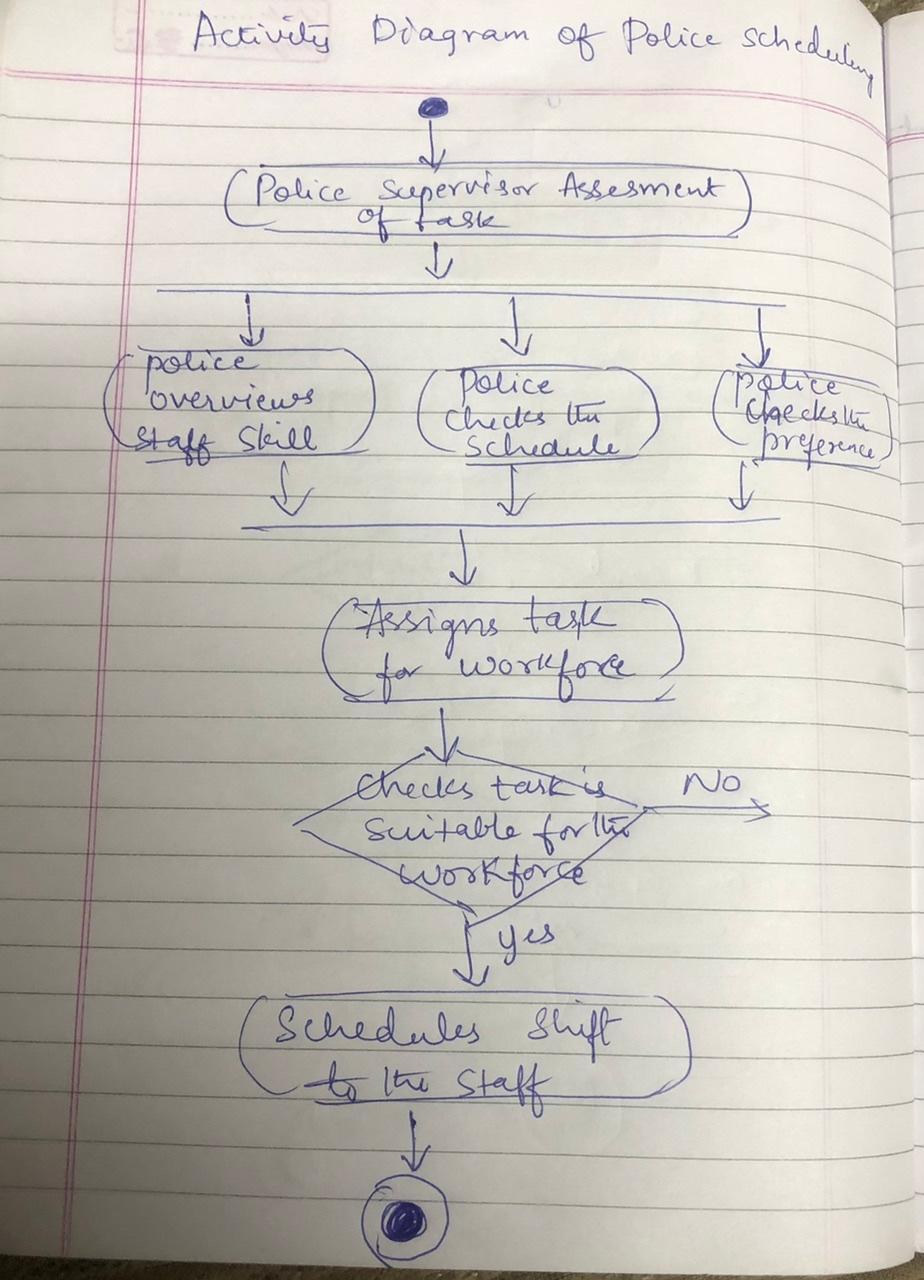 Activity Diagram of Police scheduling
Police supervisor Assesment
of task
police
overviews
staff skill
Police
checks the
schedule
police
checks the
preference
Assigns task
for workforce
Checks task is
suitable for the
workforce
No
yes
Schedules shift
to the staff